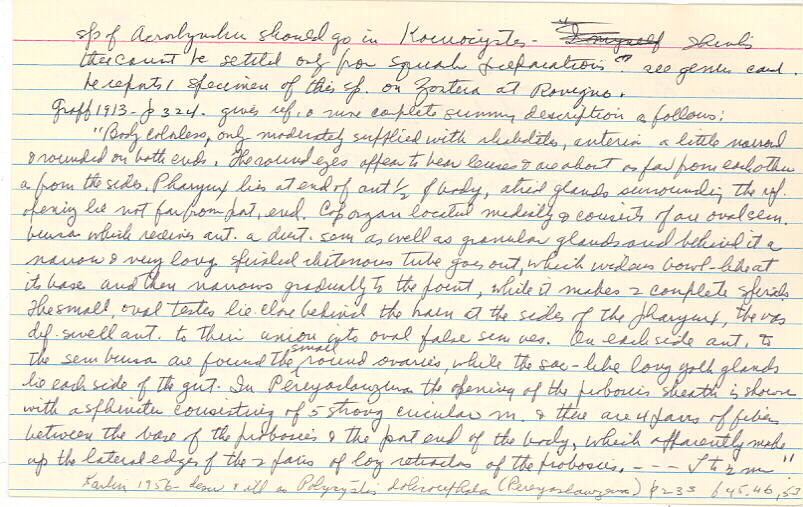 sp of Acrorhynchus should go in Koinocystis - "I myself think
this cannot be settled only from squash preparations" see genus card.
he reports 1 specimen of this sp. on Zostera at Rovigno.
Graff 1913 - p 324. gives ref. & more complete summary description as follows:
"Body colorless, only moderately supplied with rhabdites, anterior a little narrowed
& rounded on both ends. The round eyes appear to bear lenses & are about as far from each other
as from the sides. Pharynx lies at end of ant ½ of body, atrial glands surrounding the
opening lie not far from post. end. Cop organ located medially & consists of an oval sem.
bursa which receives ant. a duct. sem as well as granular glands and behind it a
narrow & very long spiraled chitonous tube goes out, which widens bowl-like at
its base and then narrows gradually to the point, while it makes 2 complete spirals
The small, oval testes lie close behind the brain at the sides of the pharynx, the vas
def. swell ant. to their union into oval false sem ves. On each side ant. to
the sem bursa are found the small round ovaries, while the sac-like long yolk glands
lie each side of the gut. In Pereyaslawzewa the opening of the proboscis sheath is shown
with a sphincter consisting of 5 strong circular m. & there are 4 pairs of fibers
between the base of the proboscis & the post end of the body, which apparently make
up the lateral edges of the 2 pairs of long retractors of the proboscis. --- 1 to 2 mm"
Karling 1956 - descr & ill as Polycystis dolicocephala (Pereyaslawzewa) p 233 f 45, 46, 53